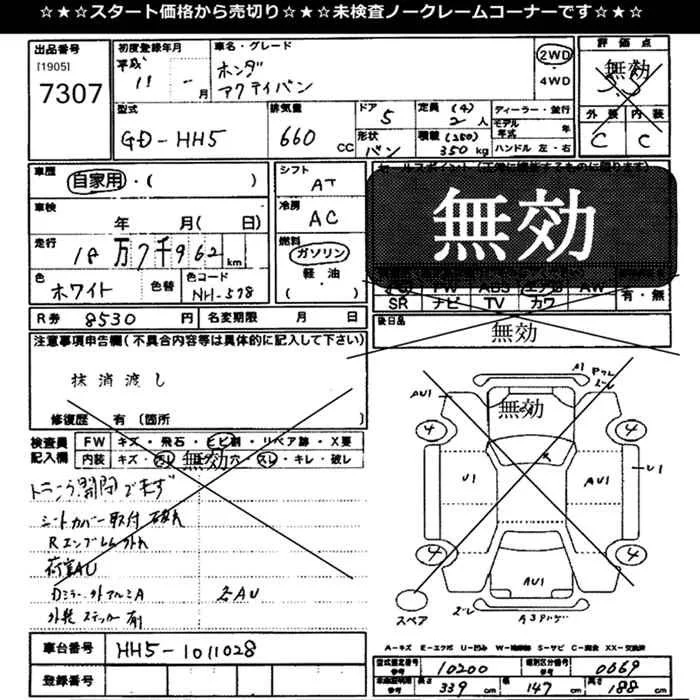 ☆★☆スタート価格から売切り☆★☆未検査ノークレームコーナーです☆★☆
出品番号
[1905]
7307
初度登録年月
平成 11 - 月
車名・グレード
ホンダ
アクティバン
2WD
4WD
評価点
無効
外装 内装
C C
型式
GD-HH5
排気量
660 CC
ドア
5
形状
バン
定員 (4)
2 人
積載 (250)
350 kg
ディーラー・並行
モデル年式 年
ハンドル 左・右
車歴
自家用・( )
車検
年 月( 日)
走行
18万7千962 km
色
ホワイト
色替
色コード
NH-578
シフト
AT
冷房
AC
燃料
ガソリン
軽・油
( )
セールスポイント
無効
SR ナビ TV カワ
有・無
R券 8530 円
名変期限 月 日
後日品
無効
注意事項申告欄(不具合内容等は具体的に記入して下さい)
抹消渡し
修復歴 有〔箇所 〕
検査員記入欄
FW キズ・飛石・ヒビ割・リペア跡・X要
内装 キズ・ 無効 穴・スレ・キレ・破レ
シートカバー取付 破れ
Rエンブレム外れ
荷室AU
各AU
外装 ステッカー有
無効
A1
AU1
4
4
U1
AU1
U1
4
4
AU1
スペア
車台番号 HH5-1011028
登録番号
型式指定番号 参考 10200
類別区分番号 参考 0069
長さ 339 cm
幅 147 cm
高さ 188 cm